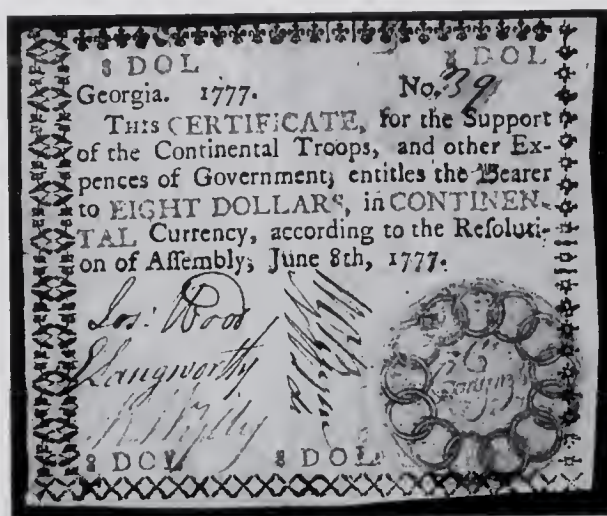 8 DOL 8 DOL
Georgia. 1777. No. 39
THIS CERTIFICATE, for the Support
of the Continental Troops, and other Ex-
pences of Government; entitles the Bearer
to EIGHT DOLLARS, in CONTINEN-
TAL Currency, according to the Resoluti-
on of Assembly; June 8th, 1777.
Jos: Wood
ELangworthy
8 DOL 8 DOL